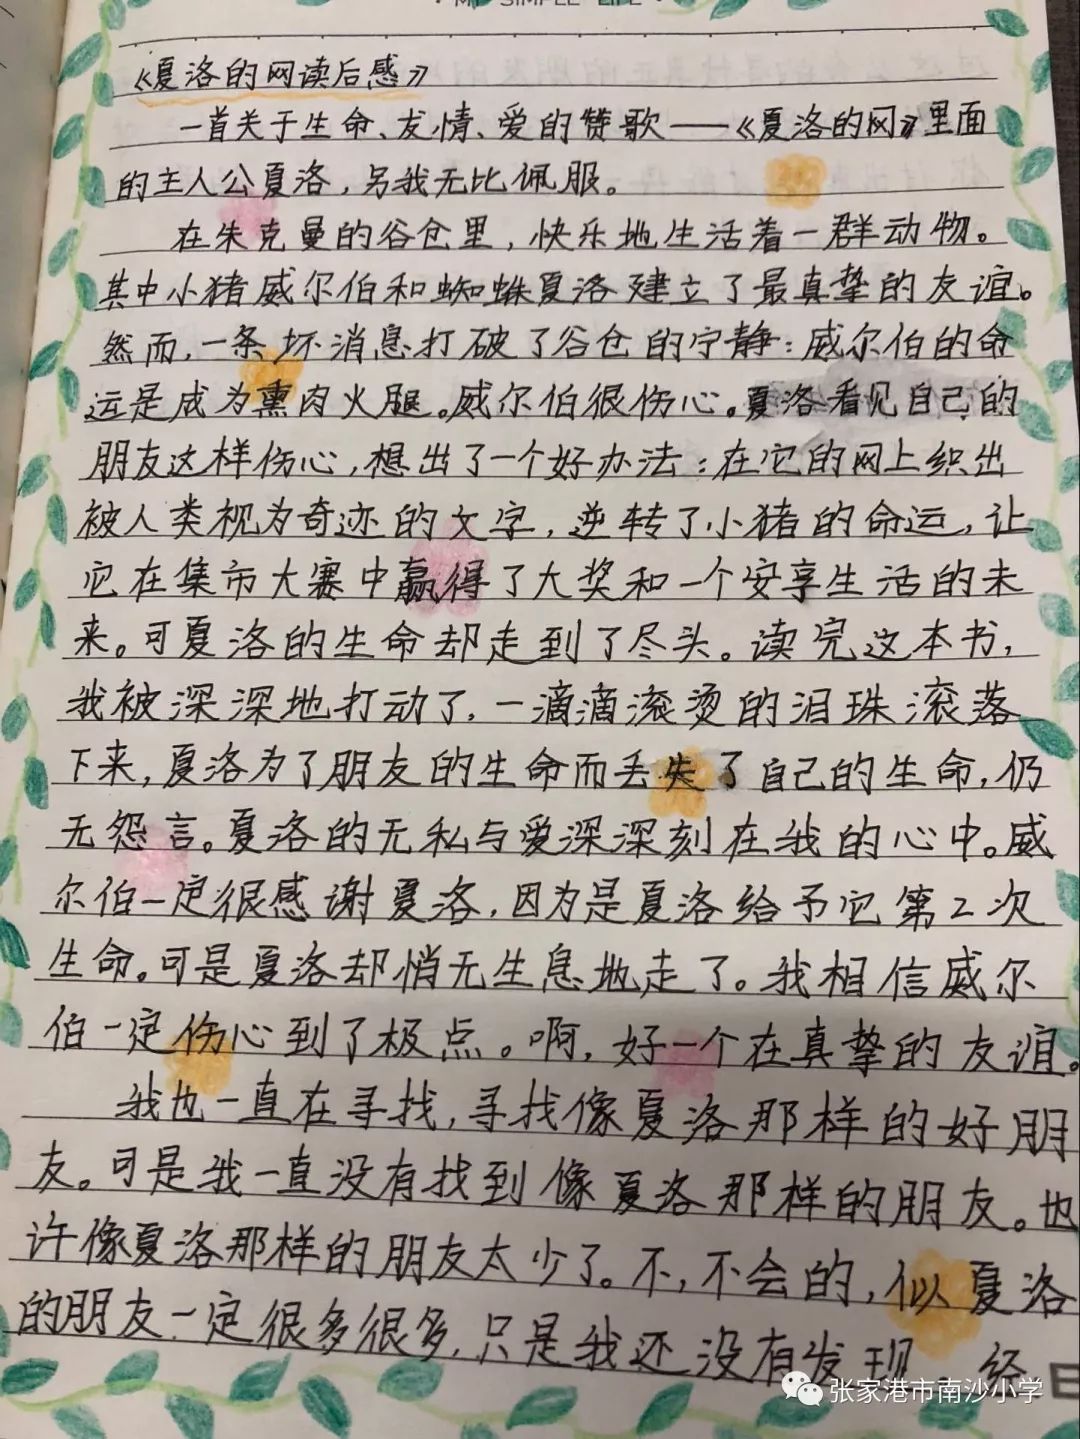 · MY SIMPLE LIFE ·
《夏洛的网读后感》
一首关于生命、友情、爱的赞歌——《夏洛的网》里面
的主人公夏洛，另我无比佩服。
在朱克曼的谷仓里，快乐地生活着一群动物。
其中小猪威尔伯和蜘蛛夏洛建立了最真挚的友谊。
然而，一条坏消息打破了谷仓的宁静：威尔伯的命
运是成为熏肉火腿。威尔伯很伤心。夏洛看见自己的
朋友这样伤心，想出了一个好办法：在它的网上织出
被人类视为奇迹的文字，逆转了小猪的命运，让
它在集市大赛中赢得了大奖和一个安享生活的未
来。可夏洛的生命却走到了尽头。读完这本书，
我被深深地打动了，一滴滴滚烫的泪珠滚落
下来，夏洛为了朋友的生命而丢失了自己的生命，仍
无怨言。夏洛的无私与爱深深刻在我的心中。威
尔伯一定很感谢夏洛，因为是夏洛给予它第2次
生命。可是夏洛却悄无生息地走了。我相信威尔
伯一定伤心到了极点。啊，好一个在真挚的友谊。
我也一直在寻找，寻找像夏洛那样的好朋
友。可是我一直没有找到像夏洛那样的朋友。也
许像夏洛那样的朋友太少了。不，不会的，似夏洛
的朋友一定很多很多，只是我还没有发现
张家港市南沙小学